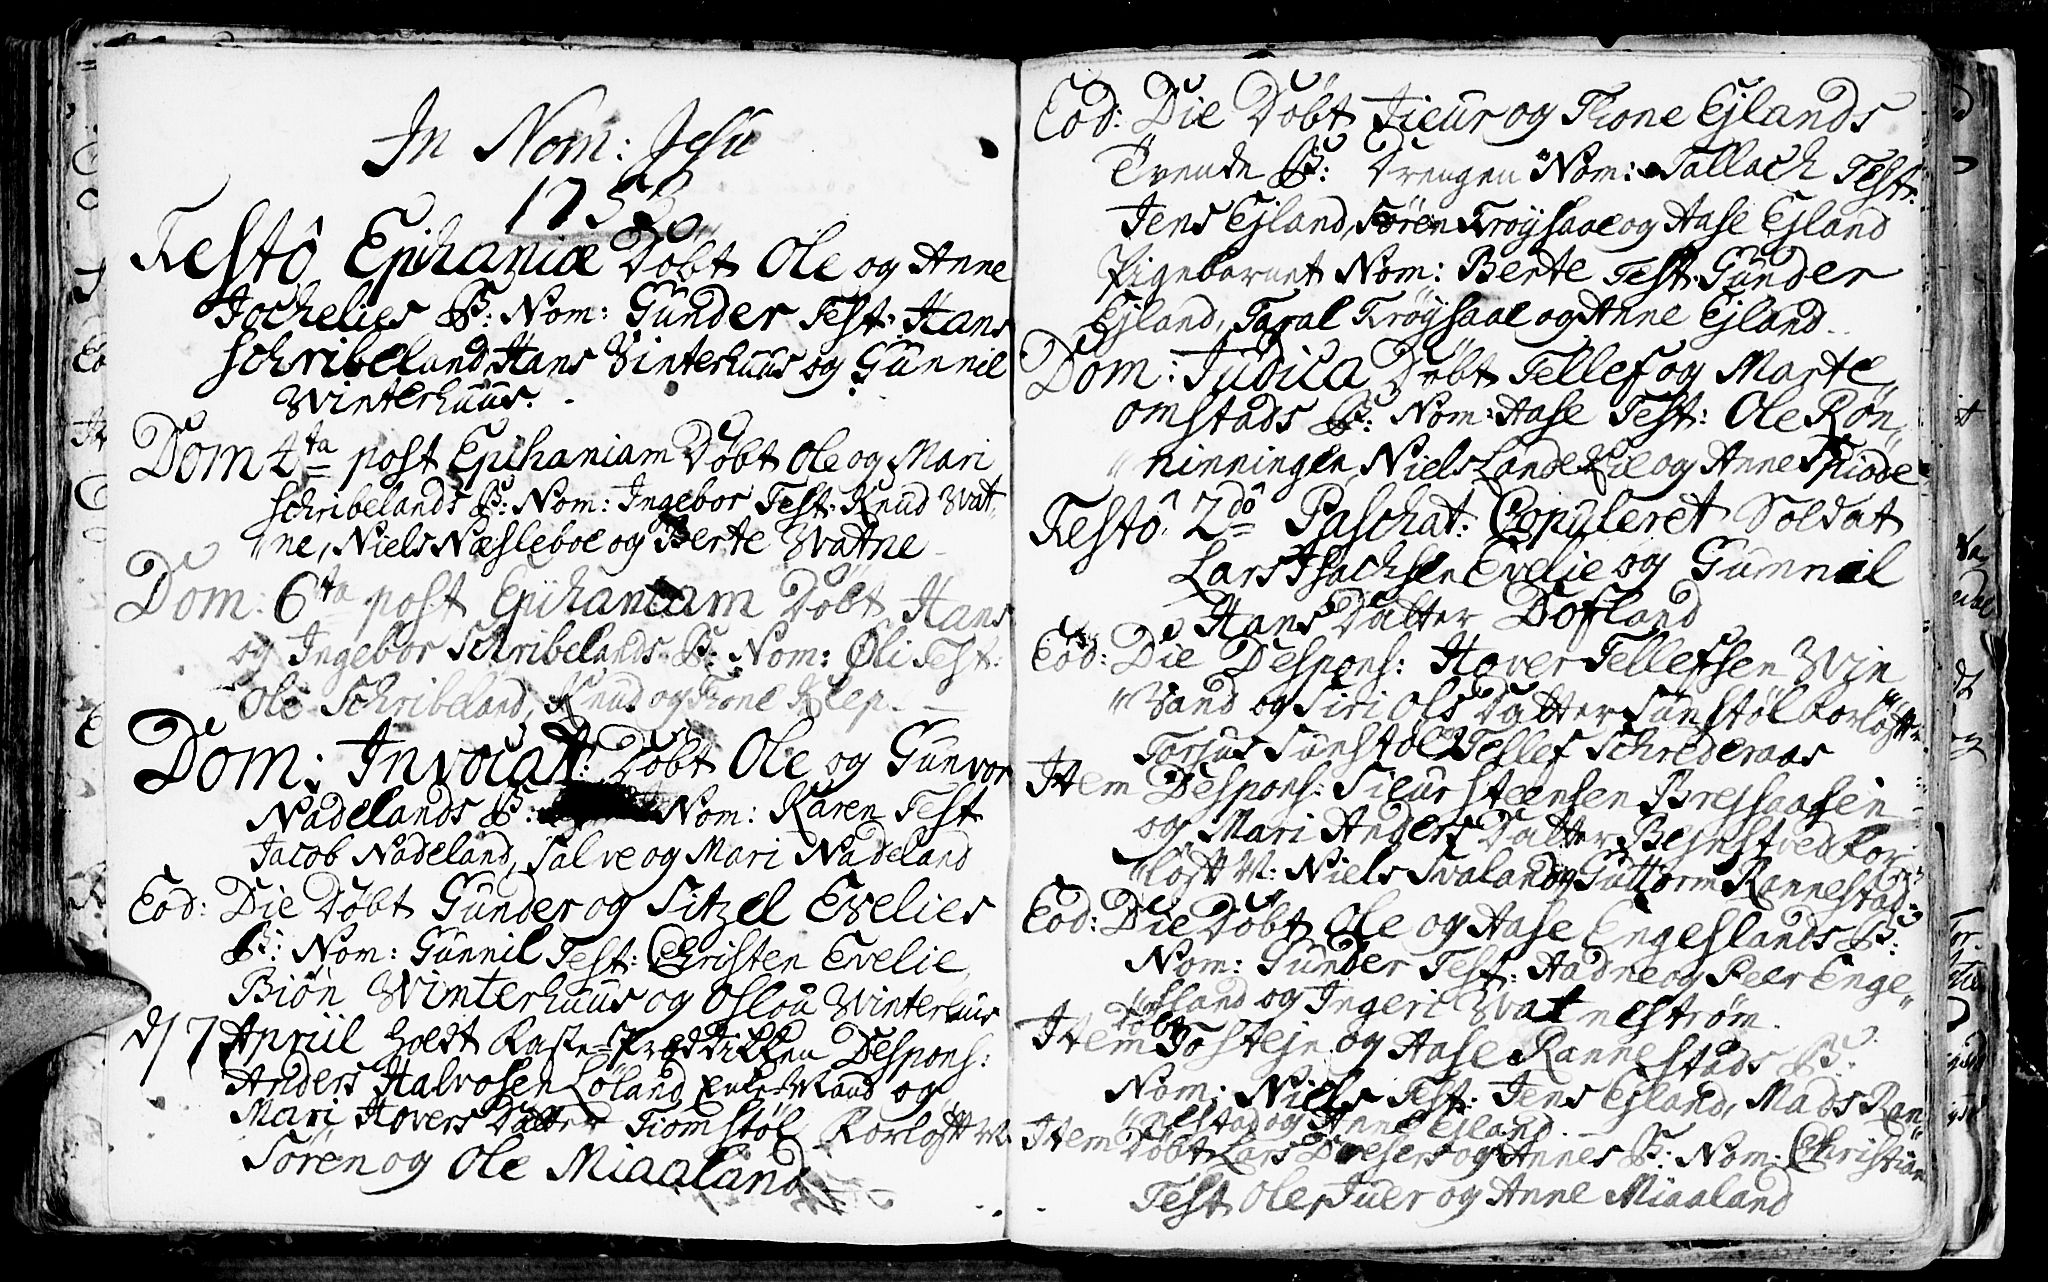 In Nom: Jesu
1753
Festô Epihaniæ Døbt Ole og Anne
Jochelies B: Nom: Gunder Test: Hans
Schribeland, Hans Winterhuus og Gunnil
Winterhuus.
Dom 4ta post Epihaniam Døbt Ole og Mari
Schribelands B: Nom: Ingebor Test: Knud Wat„
„ne, Niels Næsleboe og Berte Watne
Dom: 6ta post Epihaniam Døbt Hans
og Ingebor Schribelands B: Nom: Øli Test:
Ole Schribeland, Knud og Tone Klep.
Dom: Invocat: Døbt Ole og Gunvor
Nadelands B: Nom: Karen Test
Jacob Nadeland, Salve og Mari Nadeland
Eod: Die Døbt Gunder og Sitzel Evelies
B: Nom: Gunnil Test: Christen Evelie,
Biøn Winterhuus og Oslou Winterhuus
d/7 Apriil Holdt Faste-Præddikken Despons:
Anders Halvorsen Løland Enke-Mand og
Mari Hovers Datter Tiomstøl Forlofft M:
Søren og Ole Miaaland
Eod: Die Døbt Sieur og Tone Ejlands
Tvende B: Drengen Nom: Tallach Test:
Jens Ejland, Søren Frøysaae og Aase Ejland
Pigebarnet Nom: Berte Test: Gunder
Ejland, Taral Frøysaae og Anne Ejland.
Dom: Judica Døbt Tellef og Marte
Omstads B: Nom: Aase Test: Ole Røn„
„ninningen, Niels Landelie og Anne Spiode
Festô 2dô Paschat: Copuleret Soldat
Lars Isachsen Evelie og Gunnil
Hans Datter Dofland
Eod: Die Despons: Hover Tellefsen Win
„Wand og Siri Ols Datter Sunstøl Forlofft
Torjus Sunstøl og Tellef Schrederaas
Item Despons: Sieur Steensen Brejsaasen
og Mari Anders Datter Bejestved For„
„lofft M: Niels Svaland og Guttorm Rannestad
Eod: Die Døbt Ole og Aase Engeslands B:
Nom: Gunder Test: Aadne og Peer Enge„
„sland og Ingeri Watnestrøm.
Item Døbt Tostejn og Aase Rannestads B:
Nom: Niels Test: Jens Ejland, Mads Ran„
„nestad og Anne Ejland.
Item Døbt Lars og Annes B: Nom: Christian
Test Ole, Juer og Anne Miaaland